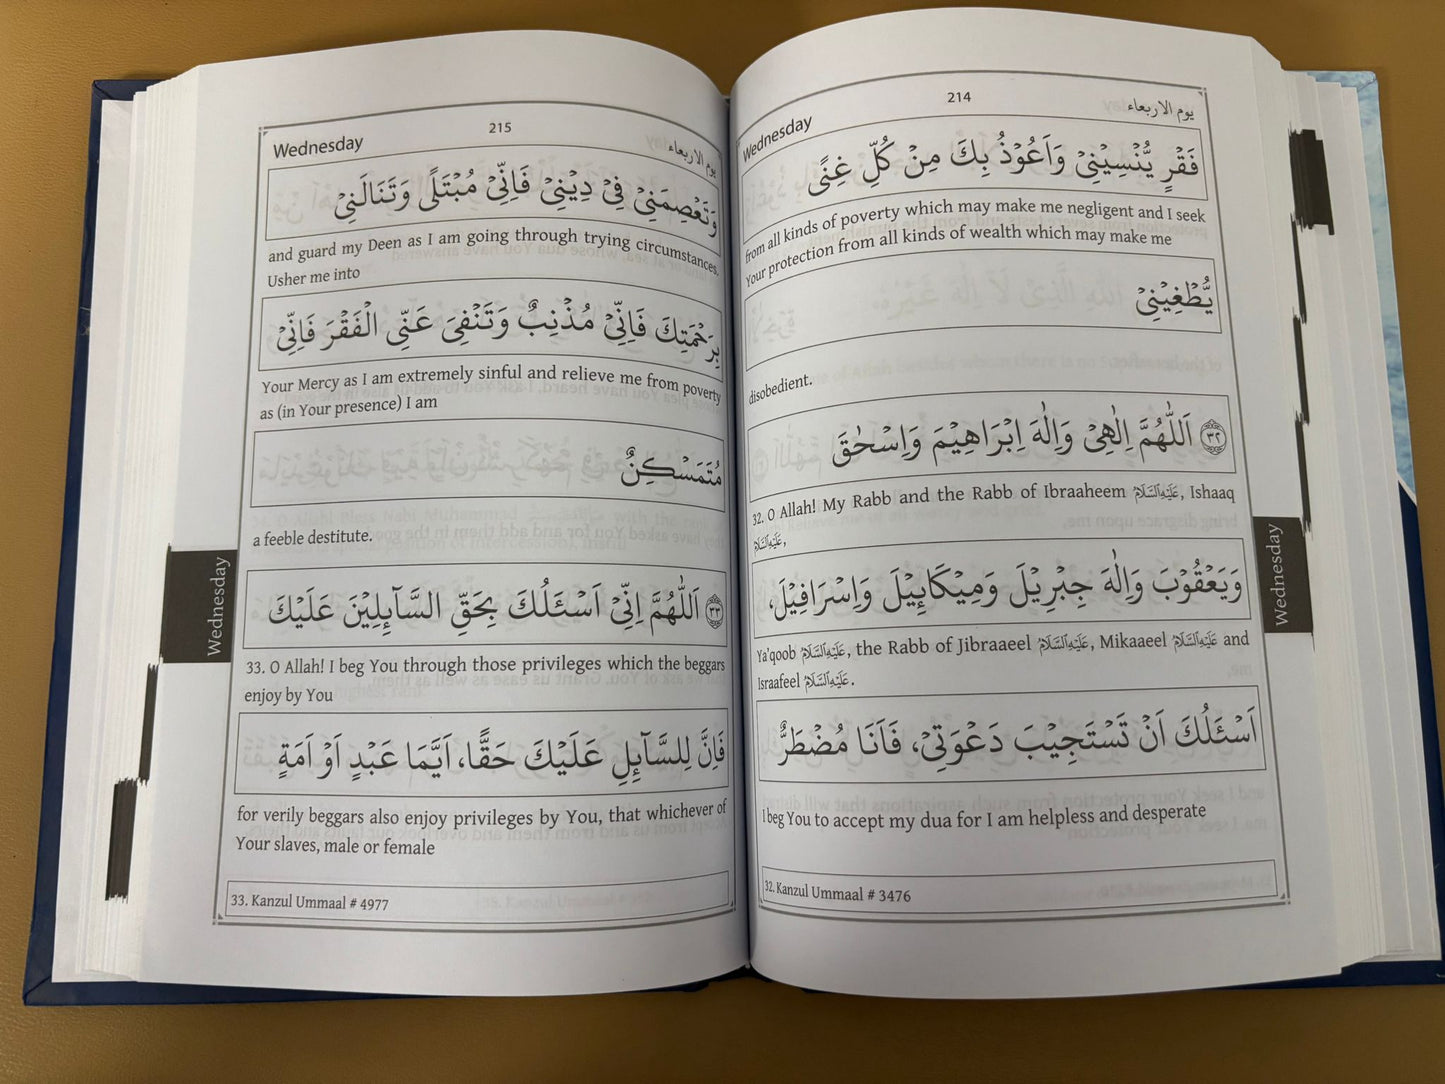 Wednesday
214
يوم الاربعاء
فَقْرٍ يُّنْسِيْنِيْ وَاَعُوْذُ بِكَ مِنْ كُلِّ غِنًى
from all kinds of poverty which may make me negligent and I seek
Your protection from all kinds of wealth which may make me
يُّطْغِيْنِيْ
disobedient.
٣٢ اَللّٰهُمَّ اِلٰهِيْ وَاِلٰهَ اِبْرَاهِيْمَ وَاِسْحٰقَ
32. O Allah! My Rabb and the Rabb of Ibraaheem عَلَيْهِ السَّلَامُ, Ishaaq
عَلَيْهِ السَّلَامُ,
وَيَعْقُوْبَ وَاِلٰهَ جِبْرِيْلَ وَمِيْكَايِٕيْلَ وَاِسْرَافِيْلَ،
Ya'qoob عَلَيْهِ السَّلَامُ, the Rabb of Jibraaeel عَلَيْهِ السَّلَامُ, Mikaaeel عَلَيْهِ السَّلَامُ and
Israafeel عَلَيْهِ السَّلَامُ.
اَسْئَلُكَ اَنْ تَسْتَجِيْبَ دَعْوَتِيْ، فَاَنَا مُضْطَرٌّ
I beg You to accept my dua for I am helpless and desperate
32. Kanzul Ummaal # 3476
Wednesday
Wednesday
215
يوم الاربعاء
وَتَعْصِمَنِيْ فِيْ دِيْنِيْ فَاِنِّيْ مُبْتَلًى وَتَنَالَنِيْ
and guard my Deen as I am going through trying circumstances.
Usher me into
بِرَحْمَتِكَ فَاِنِّيْ مُذْنِبٌ وَتَنْفِيَ عَنِّى الْفَقْرَ فَاِنِّيْ
Your Mercy as I am extremely sinful and relieve me from poverty
as (in Your presence) I am
مُتَمَسْكِنٌ
a feeble destitute.
٣٣ اَللّٰهُمَّ اِنِّيْ اَسْئَلُكَ بِحَقِّ السَّآئِلِيْنَ عَلَيْكَ
33. O Allah! I beg You through those privileges which the beggars
enjoy by You
فَاِنَّ لِلسَّآئِلِ عَلَيْكَ حَقًّا، اَيَّمَا عَبْدٍ اَوْ اَمَةٍ
for verily beggars also enjoy privileges by You, that whichever of
Your slaves, male or female
33. Kanzul Ummaal # 4977
Wednesday